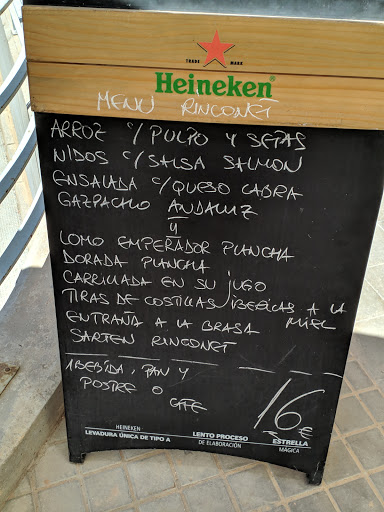 TRADE MARK
Heineken®
MENÚ RINCONET
ARROZ c/ PULPO Y SETAS
NIDOS c/ SALSA SALMON
ENSALADA c/ QUESO CABRA
GAZPACHO ANDALUZ
Y
LOMO EMPERADOR PLANCHA
DORADA PLANCHA
CARRILLADA EN SU JUGO
TIRAS DE COSTILLAS IBERICAS A LA MIEL
ENTRAÑA A LA BRASA
SARTEN RINCONET
1 BEBIDA, PAN Y
POSTRE O
CAFE
16€
HEINEKEN
LEVADURA ÚNICA DE TIPO A
LENTO PROCESO
DE ELABORACIÓN
ESTRELLA
MÁGICA